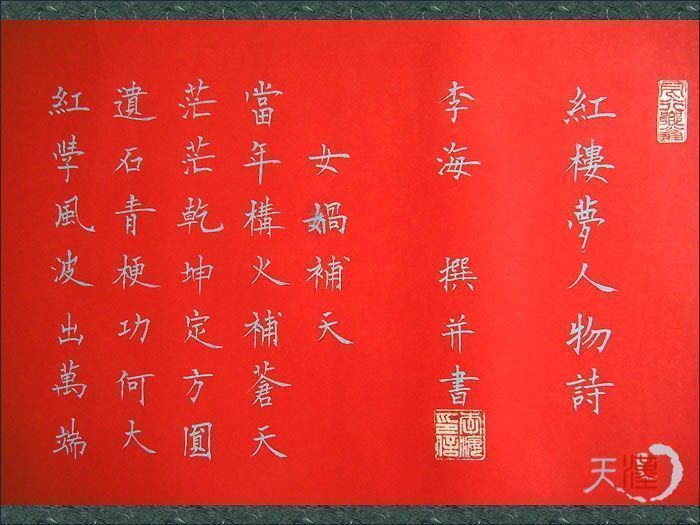 紅樓夢人物詩
李海 撰并書
女媧補天
當年構火補蒼天
茫茫乾坤定方圓
遺石青梗功何大
紅學風波出萬端
天漢